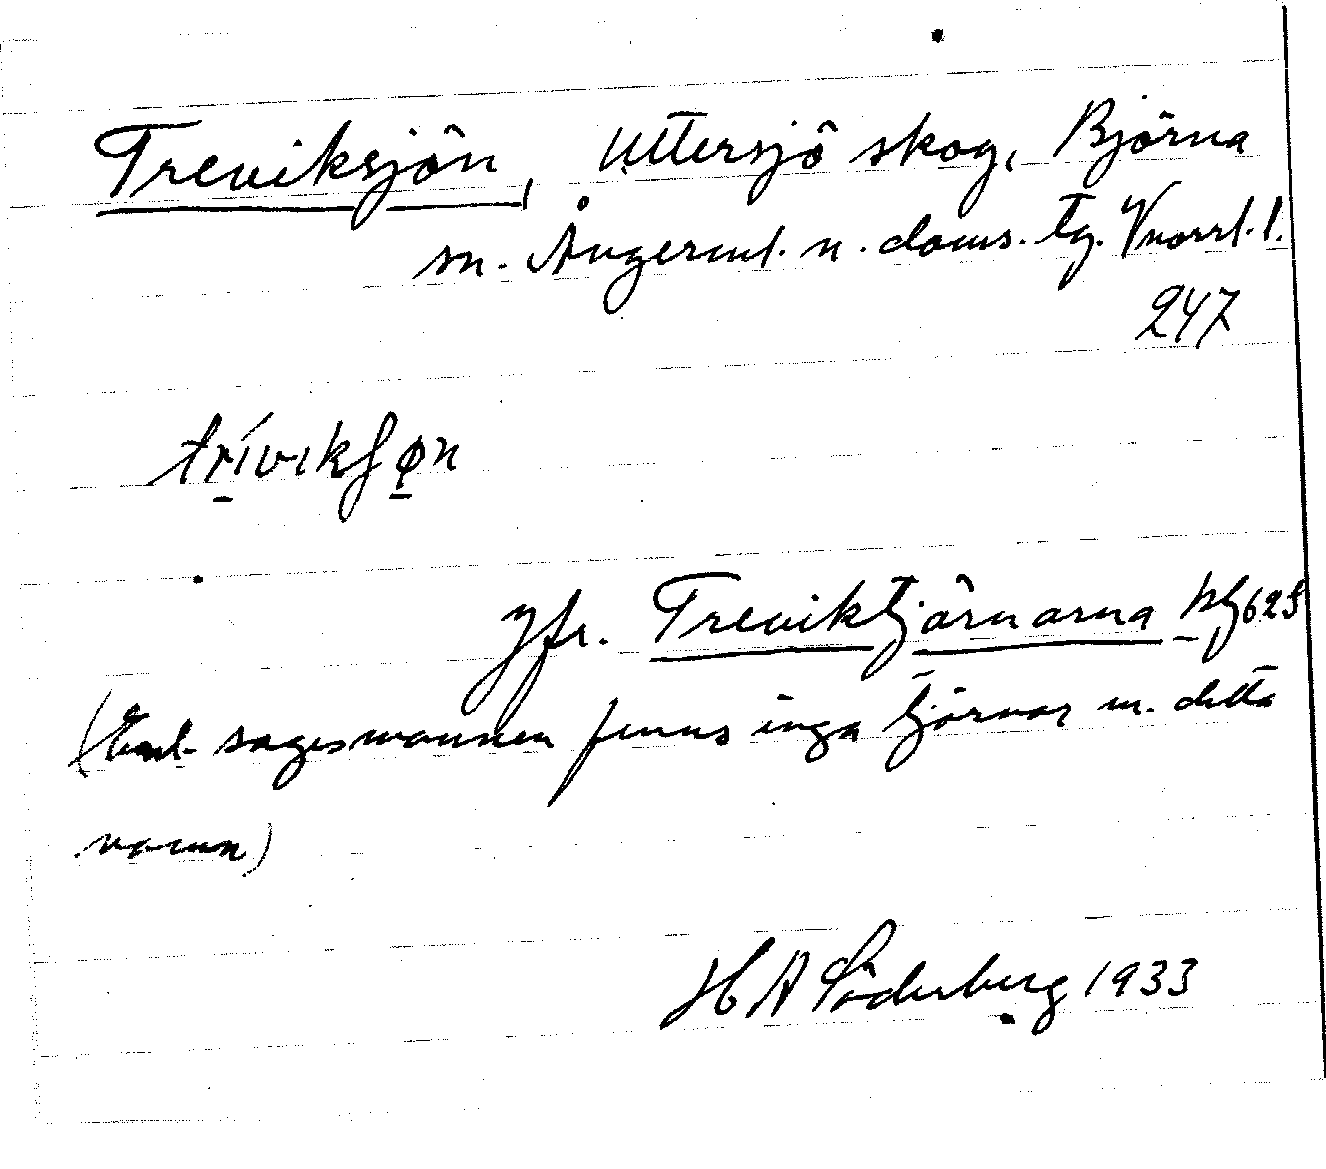 Treviksjön, Uttersjö skog, Björna
sn. Ångerml. n. doms. tg. Vnorrl. l.
247
trívikʃøn
Jfr. Treviktjärnarna bl 625
(Enl. sagesmannen finns inga tjärnar m. detta
namn)
H A Söderberg 1933